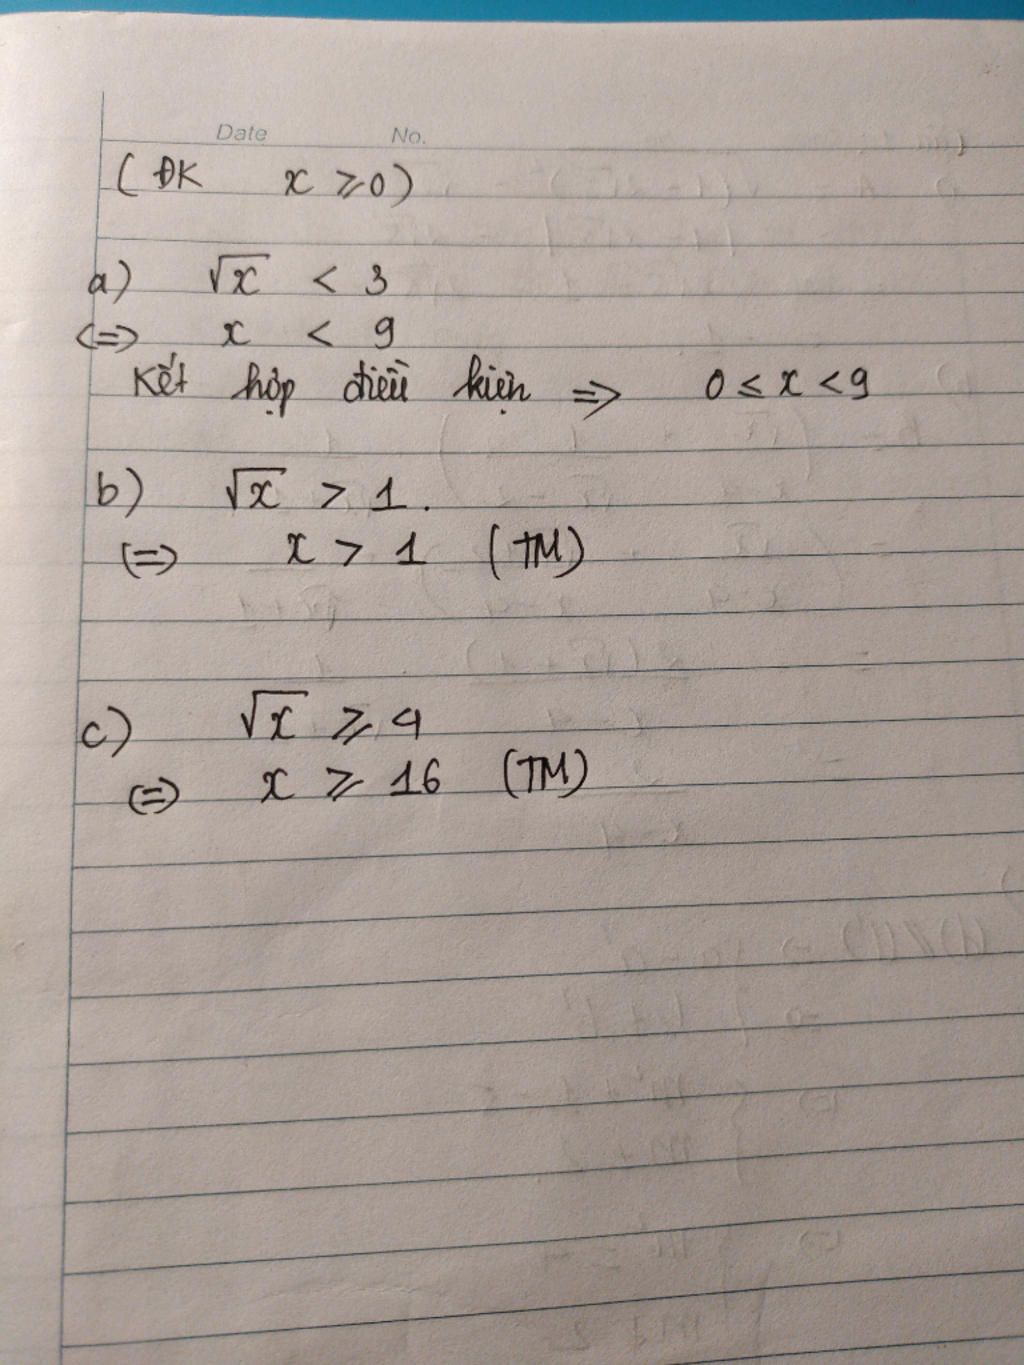 Date No.
( ĐK x ⩾ 0 )
a) √x < 3
<=> x < 9
Kết hợp điều kiện => 0 ≤ x < 9
b) √x > 1.
<=> x > 1 (TM)
c) √x ⩾ 4
<=> x ⩾ 16 (TM)